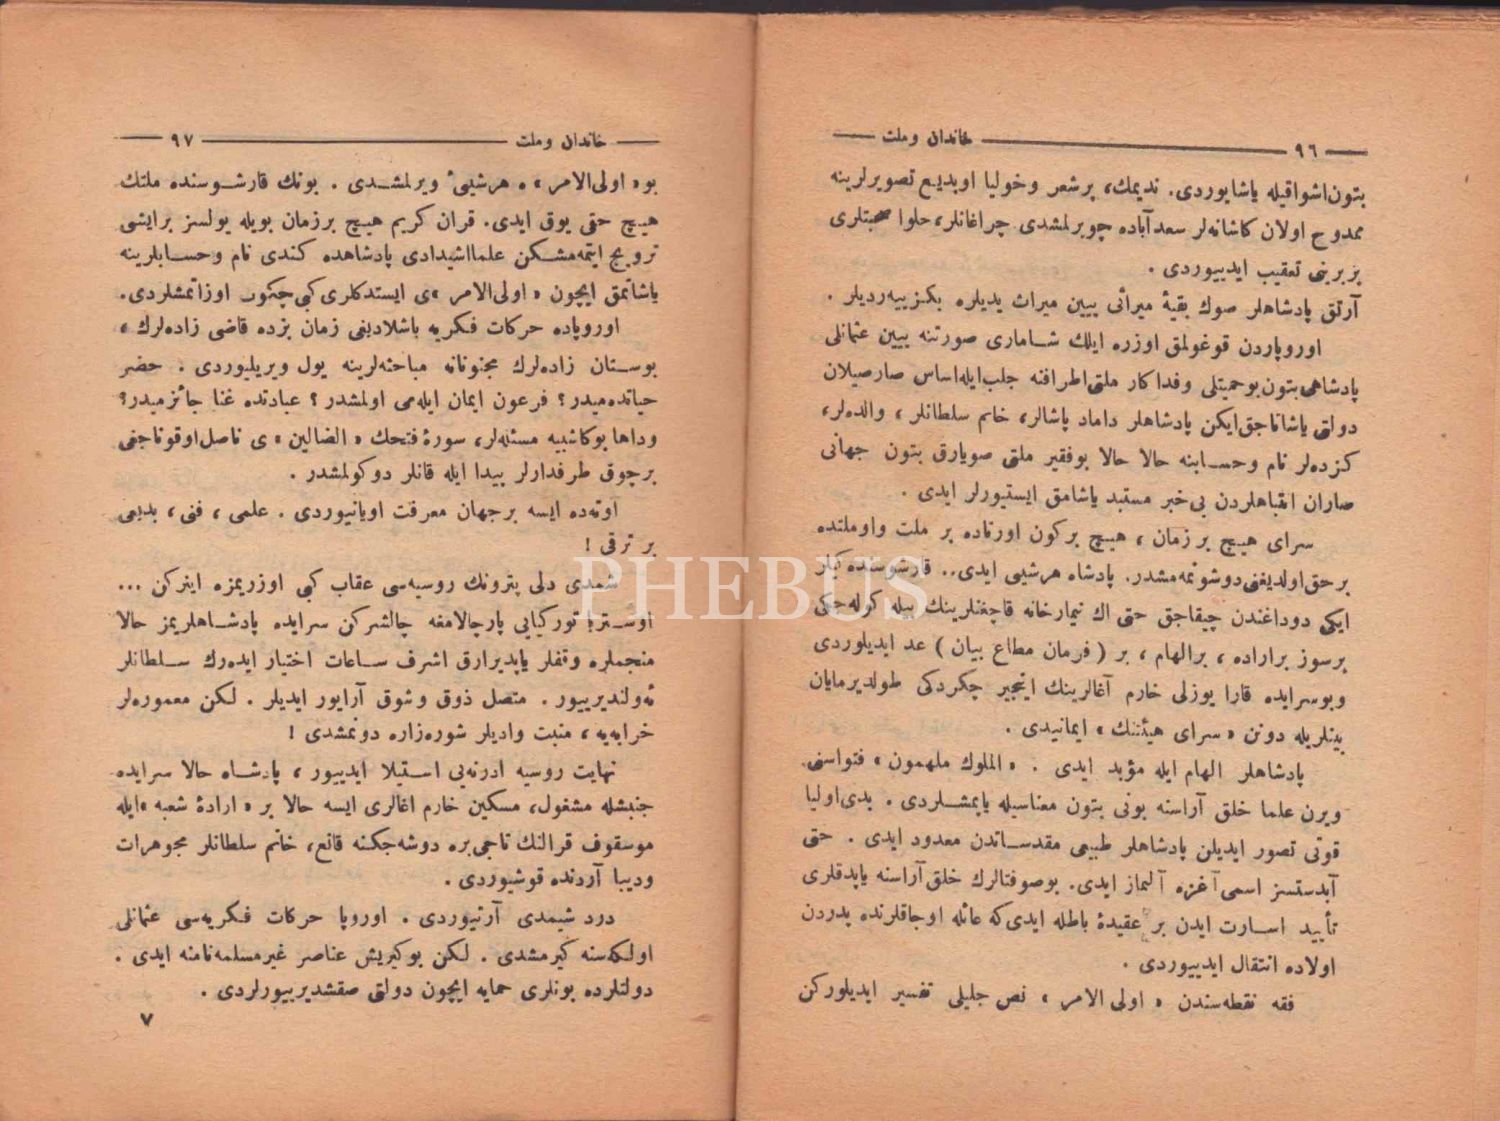 ٩٦ خاندان وملت
بتون اشواقيله ياشايوردى. نديمك، پرشعر وخوليا اوبديع تصويرلرينه
ممدوح اولان كاشانه‌لر سعدآباده چويرلمشدى چراغانلر، حلوا صحبتلرى
بربرينى تعقيب ايدييوردى .
آرتق پادشاهلر صوك بقيۀ ميراثى ييين ميراث يديلره بكزييه‌رديلر .
اوروپاردن قوغولمق اوزره ايلك شامارى صورتنه ييين عثمانلى
پادشاهى بتون بوحميتلى وفداكار ملتى اطرافنه جلب ايله اساس صارصيلان
دولتى ياشاتاجق ايكن پادشاهلر داماد پاشالر، خانم سلطانلر ، والده‌لر،
كزده‌لر نام وحسابنه حالا حالا بوفقير ملتى صويارق بتون جهانى
صاران انتباهلردن بى خبر مستبد ياشامق ايستيورلر ايدى .
سراى هيچ بر زمان ، هيچ بركون اورتاده بر ملت واوملتده
بر حق اولديغنى دوشونمه‌مشدر. پادشاه هرشيى ايدى.. قارشوسنده كيلر
ايكى دوداغندن چيقاجق حتى اك تيمارخانه قاچغنلرينك بيله كوله‌جكى
برسوز براراده ، برالهام ، بر ( فرمان مطاع بيان ) عد ايديلوردى
وبوسرايده قارا يوزلى خارم آغالرينك اينجير چكردكى طولديرمايان
بينلريله دونن « سراى هيئتنك » ايمانيدى .
پادشاهلر الهام ايله مؤيد ايدى . « الملوك ملهمون » فتواسنى
ويرن علما خلق آراسنه بونى بتون معناسيله يايمشلردى . يدى اوليا
قوتى تصور ايديلن پادشاهلر طبيعى مقدساتدن معدود ايدى . حتى
آبدستسز اسمى آغزه آلنماز ايدى. بوصوفتالرك خلق آراسنه ياپدقلرى
تأييد اسارت ايدن بر عقيدۀ باطله ايدى كه عائله اوجاقلرنده پدردن
اولاده انتقال ايدييوردى .
فقه نقطه‌سندن « اولى الامر ، نص جليلى تفسير ايديلوركن
خاندان وملت ٩٧
بو« اولى الامر » ه هرشيىٔ ويرلمشدى . بونك قارشوسنده ملتك
هيچ حقى يوق ايدى. قران كريم هيچ برزمان بويله يولسز برايشى
ترويج ايتمه‌مشكن علما اشيدادى پادشاهده كندى نام وحسابلرينه
ياشاتمق ايچون « اولى الامر »ى ايستدكلرى كبى چكوب اوزاتمشلردى.
اوروپاده حركات فكريه باشلاديغى زمان بزده قاضى زاده‌لرك ،
بوستان زاده‌لرك مجنونانه مباحثه‌لرينه يول ويريليوردى . حضر
حياتده‌ميدر؟ فرعون ايمان ايله‌مى اولمشدر؟ عبادتده غنا جائزميدر؟
وداها بوكا شبيه مسئله‌لر، سورۀ فتحك « الضالين » ى ناصل اوقوناجغى
برچوق طرفدارلر پيدا ايله قانلر دوكولمشدر .
اوته‌ده ايسه بر جهان معرفت اويانيوردى . علمى ، فنى ، بديعى
بر ترقى !
شمدى دلى پترونك روسيه‌سى عقاب كبى اوزريمزه اينركن ...
اوستريا توركيايى پارچالامغه چالشركن سرايده پادشاهلريمز حالا
منجملره وقفلر ياپديرارق اشرف ساعات اختيار ايده‌رك سلطانلر
ئه‌ولنديرييور . متصل ذوق وشوق آرايور ايديلر . لكن معموره‌لر
خرابه‌يه ، منبت واديلر شوره‌زاره دونمشدى !
نهايت روسيه ادرنه‌يى استيلا ايدييور ، پادشاه حالا سرايده
جنبشله مشغول، مسكين خارم اغالرى ايسه حالا بر « ارادۀ شعبه »ايله
موسقوف قرالنك تاجى يره دوشه‌جكنه قانع، خانم سلطانلر مجوهرات
وديبا آردنده قوشيوردى .
درد شيمدى آرتيوردى . اوروپا حركات فكريه‌سى عثمانلى
اولكه‌سنه كيرمشدى . لكن بوكيريش عناصر غيرمسلمه نامنه ايدى .
دولتلرده بونلرى حمايه ايچون دولتى صقشديرييورلردى .
٧
PHEBUS